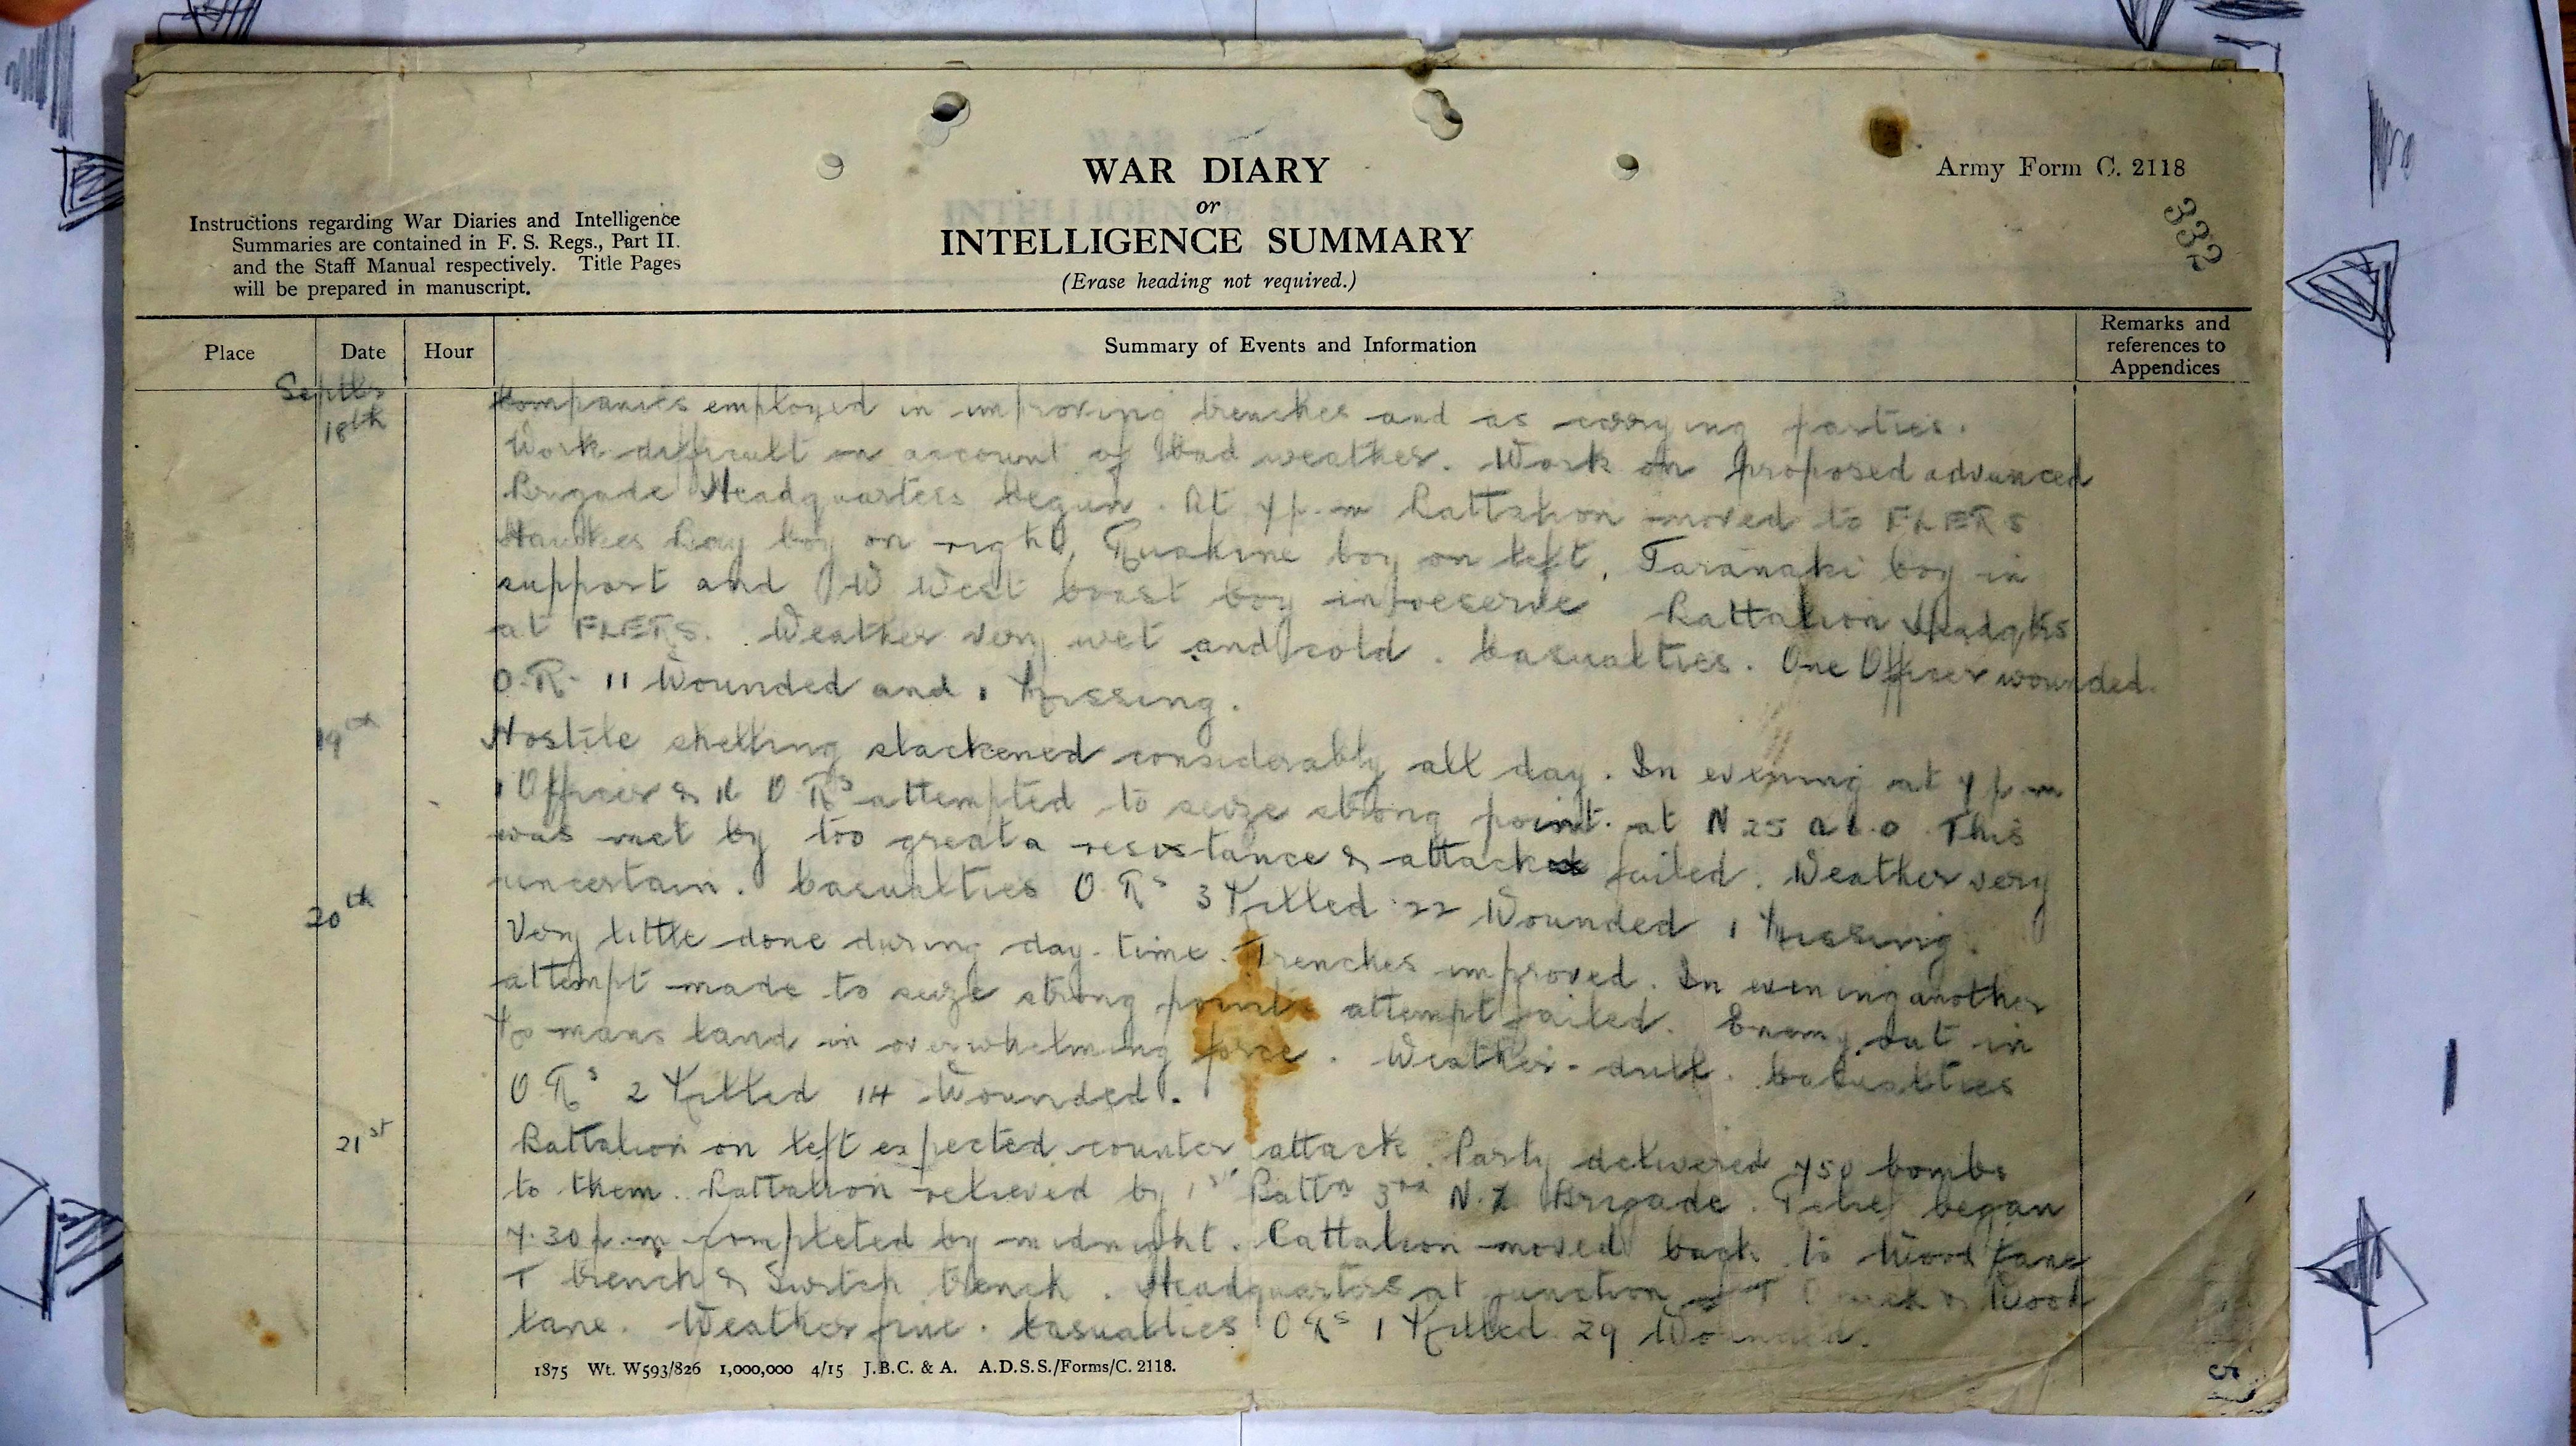 WAR DIARY
or
INTELLIGENCE SUMMARY
(Erase heading not required.)
Army Form C. 2118
332
Instructions regarding War Diaries and Intelligence
Summaries are contained in F. S. Regs., Part II.
and the Staff Manual respectively. Title Pages
will be prepared in manuscript.
Place
Date
Hour
Summary of Events and Information
Remarks and
references to
Appendices
Septbr
18th
Companies employed in improving trenches and as carrying parties.
Work difficult on account of bad weather. Work on proposed advanced
Brigade Headquarters begun. At 7 p.m Battalion moved to FLERS
Hawkes Bay Coy on right, Ruahine Coy on left, Taranaki Coy in
support and W West Coast Coy in reserve Battalion Headqrs
at FLERS. Weather very wet and cold. Casualties. One Officer wounded.
O.R. 11 Wounded and 1 Missing.
19th
Hostile shelling slackened considerably all day. In evening at 7 p.m
1 Officer & 16 O Rs attempted to seize strong point at N 25 a 6.0 This
was met by too great a resistance & attack failed. Weather very
uncertain. Casualties O Rs 3 Killed 22 Wounded 1 Missing.
20th
Very little done during day-time. Trenches improved. In evening another
attempt made to seize strong point attempt failed. Enemy out in
No mans land in overwhelming force. Weather dull. Casualties
O Rs 2 Killed 14 Wounded.
21st
Battalion on left expected counter attack. Party delivered 750 bombs
to them. Battalion relieved by 1st Battn 3rd N.Z Brigade. Relief began
7.30 p.m completed by midnight. Battalion moved back to Wood Lane
T trench & Switch trench. Headquarters at junction of T Trench & Wood
Lane. Weather fine. Casualties O Rs 1 Killed 29 Wounded.
1875 Wt. W593/826 1,000,000 4/15 J.B.C. & A. A.D.S.S./Forms/C. 2118.